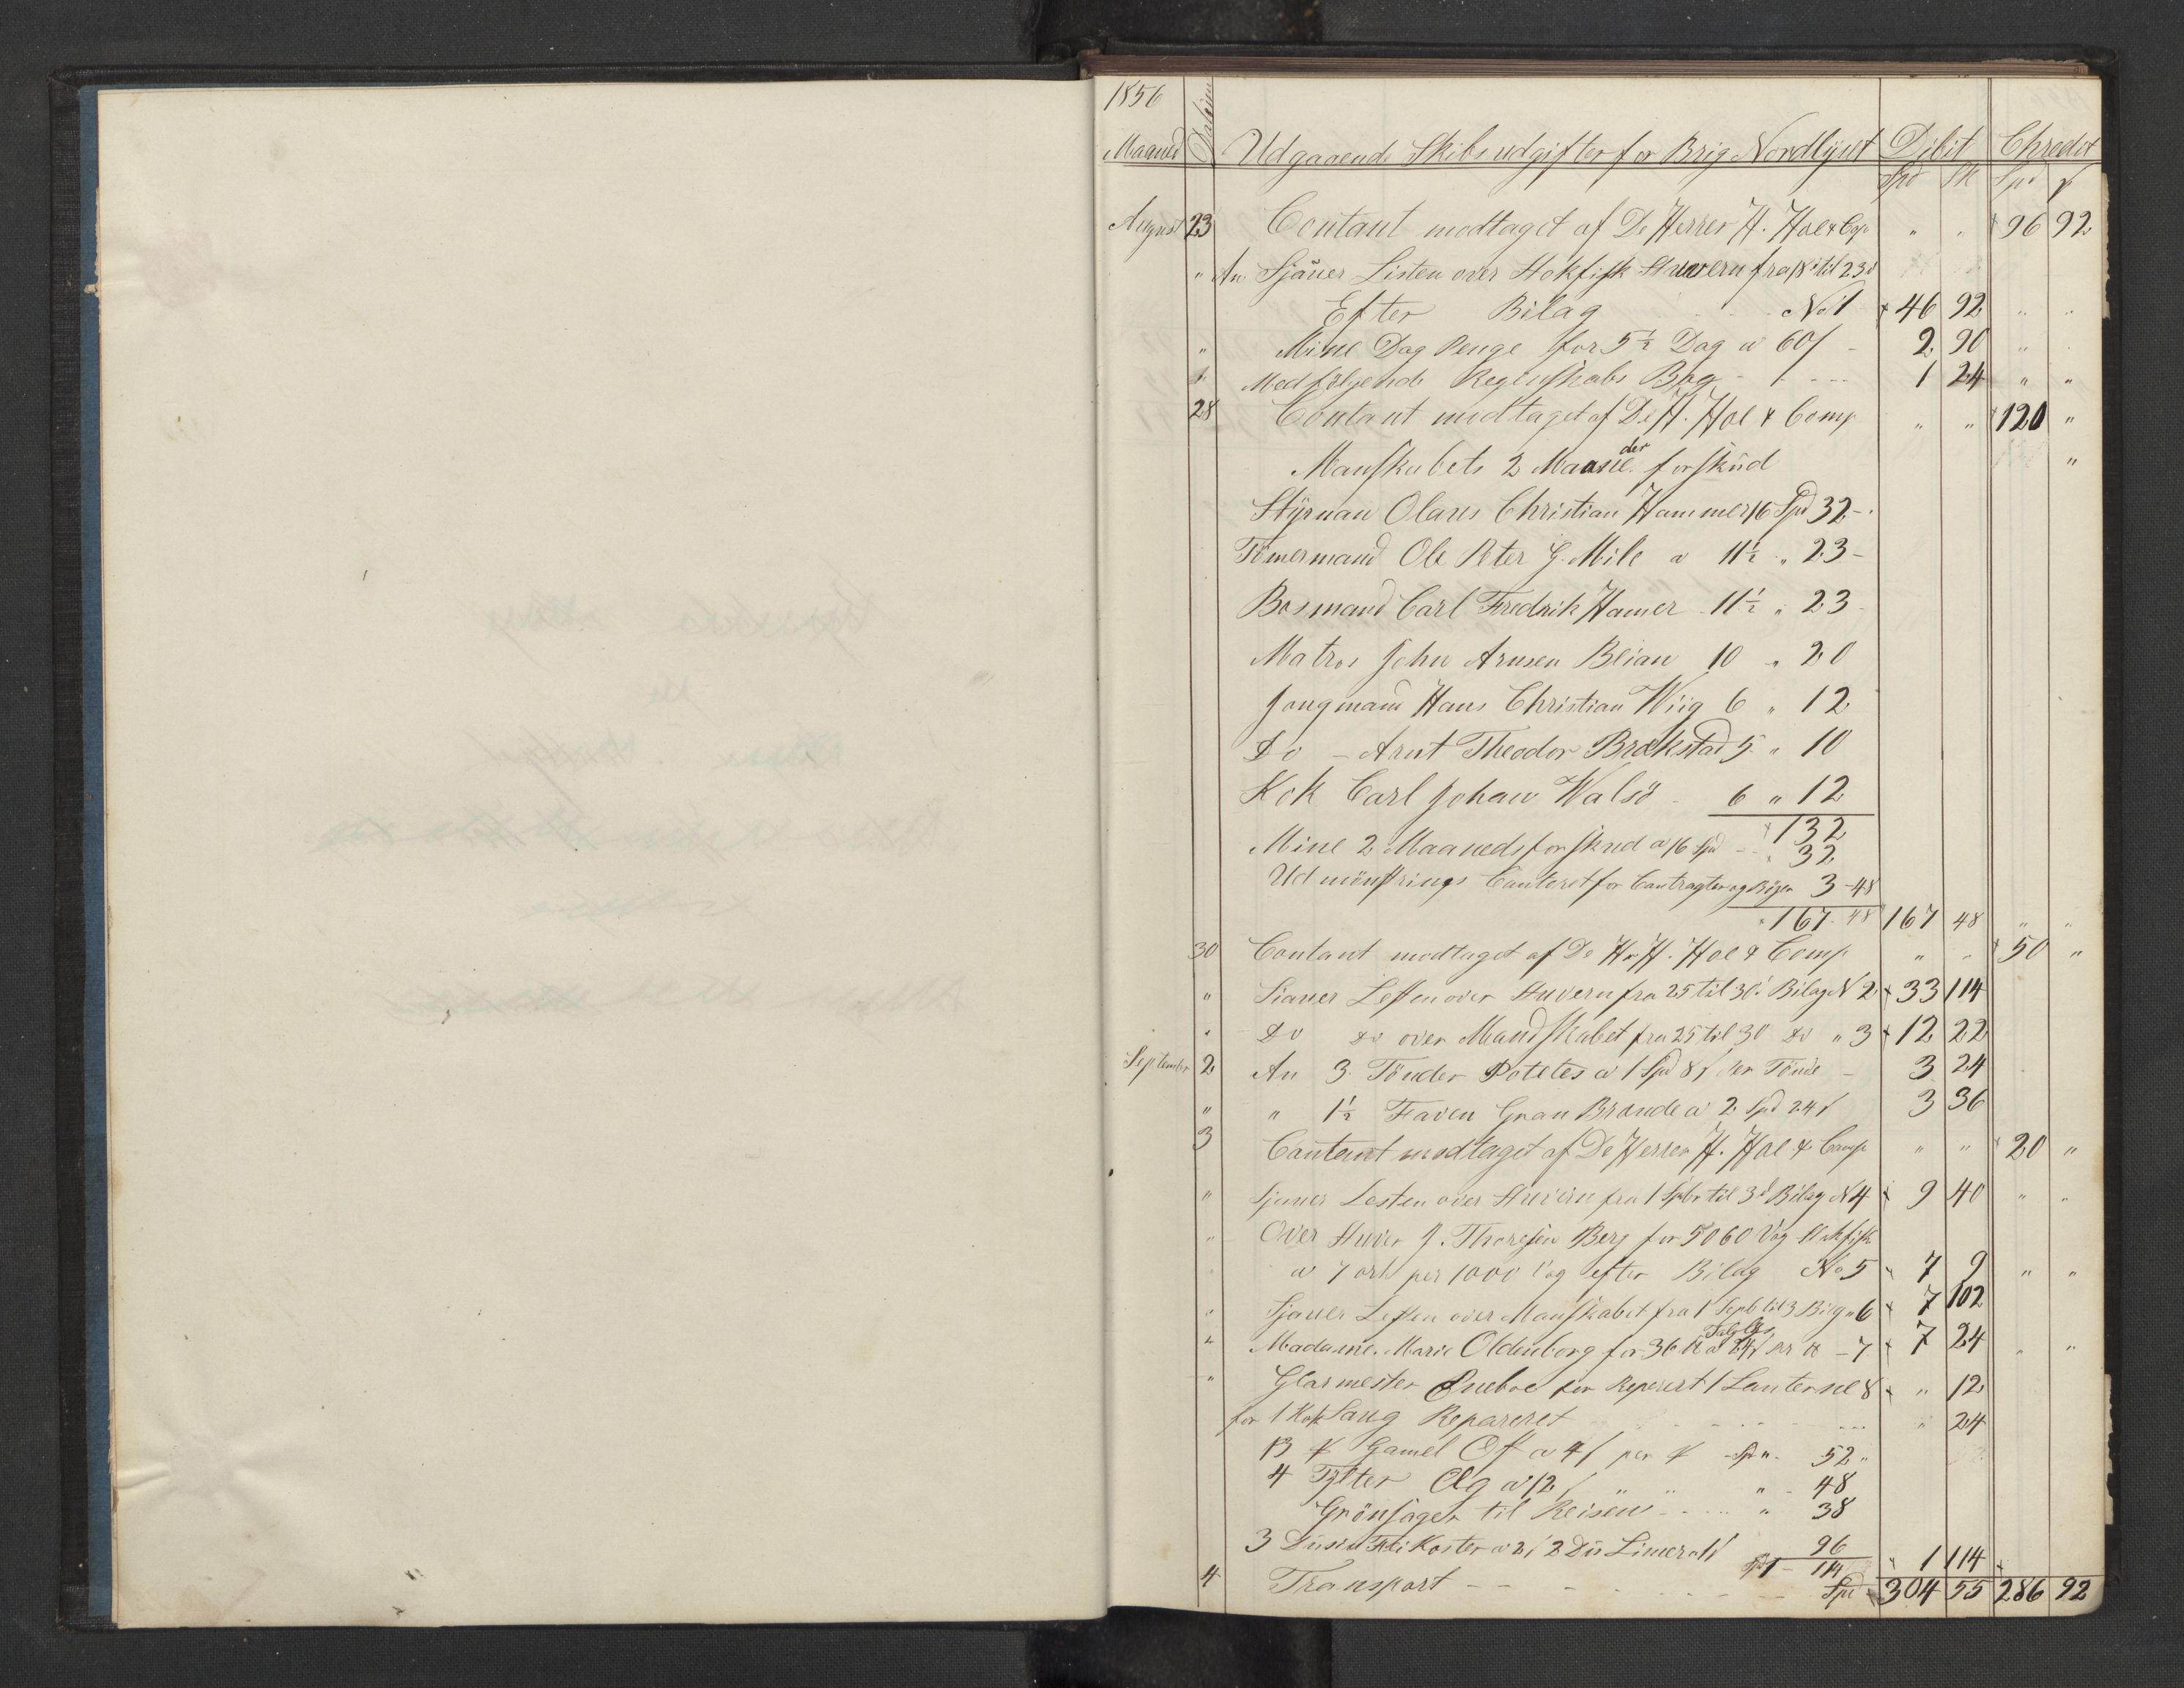 1856
Maaned Datum Udgaaende Skibsudgifter for Brig Nordlyset Debit Chredet
Spd Sk Spd
August 23 Contant modtaget af De Herrer H. Hoe & Cop " " 96 92
" An Sjäuer Listen over Stokfisk Stuvern fra 18 til 23d
Efter Bilag No 1 46 92 " "
" Mine Dag Penge for 5½ Dag a 60 2 90 "
Medfølgende Regenskabs Bog 1 24 " "
28 Contant modtaget af De H. Hoe & Comp " " 120 "
Manskabets 2 Maaneder forskud "
Styrman Olaus Christian Hammer 16 Spd 32
Tömermand Ole Peter G. Mile a 11½ " 23
Bosmand Carl Fredrik Hamer 11½ " 23
Matros John Arnsen Blian 10 " 20
Jongmand Hans Christian Wiig 6 " 12
Do Arnt Theodor Brækstad 5 " 10
Kok Carl Johan Walsö 6 " 12
132
Mine 2 Maanedsforskud a 16 Spd 32
Ud mönstrings Contoret for Contragter og Böger 3 48
167 48 167 48 " "
30 Contant modtaget af De Hr H. Hoe & Comp " " 50 "
" Siauer Lesten over Stuvern fra 25 til 30 Bilag N 2 33 114
" Do Do over Mandskabet fra 25 til 30 Do " 3 12 22
September 2 An 3 Tönder Potetes a 1 Spd 8 per Tönde 3 24
" " 1½ Faven Gran Brænde a 2 Spd 24 3 36
3 Contant modtaget af De Herrer H. Hoe & Comp " " 20 "
" Sjauer Lesten over Stuvern fra 1 Spbr til 3d Bilag N 4 9 40 " "
" Over Stuver J. Thoresen Berg for 5060 Vog Stokfisk
a 7 ort per 1000 Vog efter Bilag No 5 7 9 " "
" Sjauer Lesten over Manskabet fra 1 Septb til 3 Bilg " 6 7 102
" Madame Marie Oldenborg for 36 a 24 per 7 7 24 " "
" Glarmester for Reperert 1 Lanterne 8 " 12
for 1 Saug Repareret " 24
13 Gamel a 4 per Spd " 52 "
4 Tylter a 12 " " " 48
Grönsager til Reisen " 38
3 Dusin Koster a 2 Dus Limer 96
Spd 1 114 1 114
4 Transport Spd 304 55 286 92